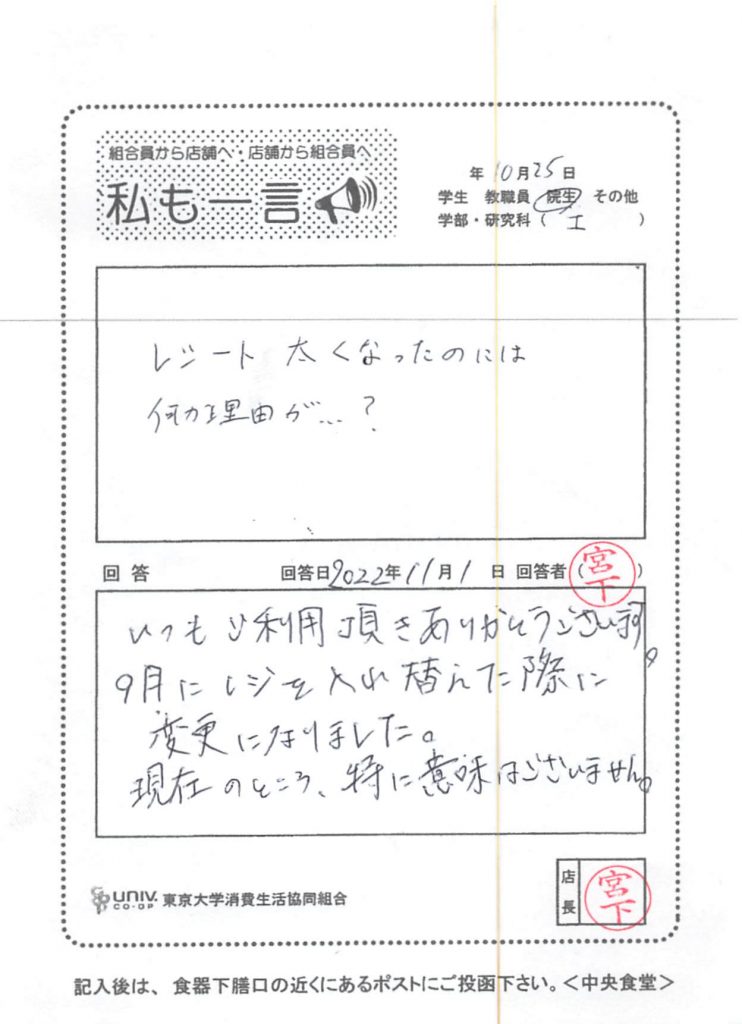 組合員から店舗へ・店舗から組合員へ
私も一言
年 10月25日
学生 教職員 院生 その他
学部・研究科 ( 工 )
レシート 太くなったのには
何か理由が…?
回答 回答日2022年11月1日 回答者 (宮下)
いつもご利用頂きありがとうございます。
9月にレジを入れ替えた際に
変更になりました。
現在のところ、特に意味はございません。
UNIV. CO-OP 東京大学消費生活協同組合
店長 宮下
記入後は、食器下膳口の近くにあるポストにご投函下さい。<中央食堂>